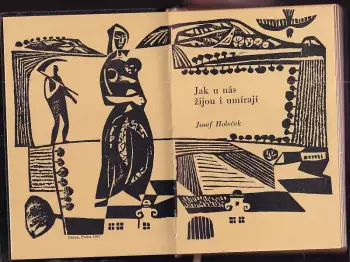 Jak u nás
žijou i umírají
Josef Holeček